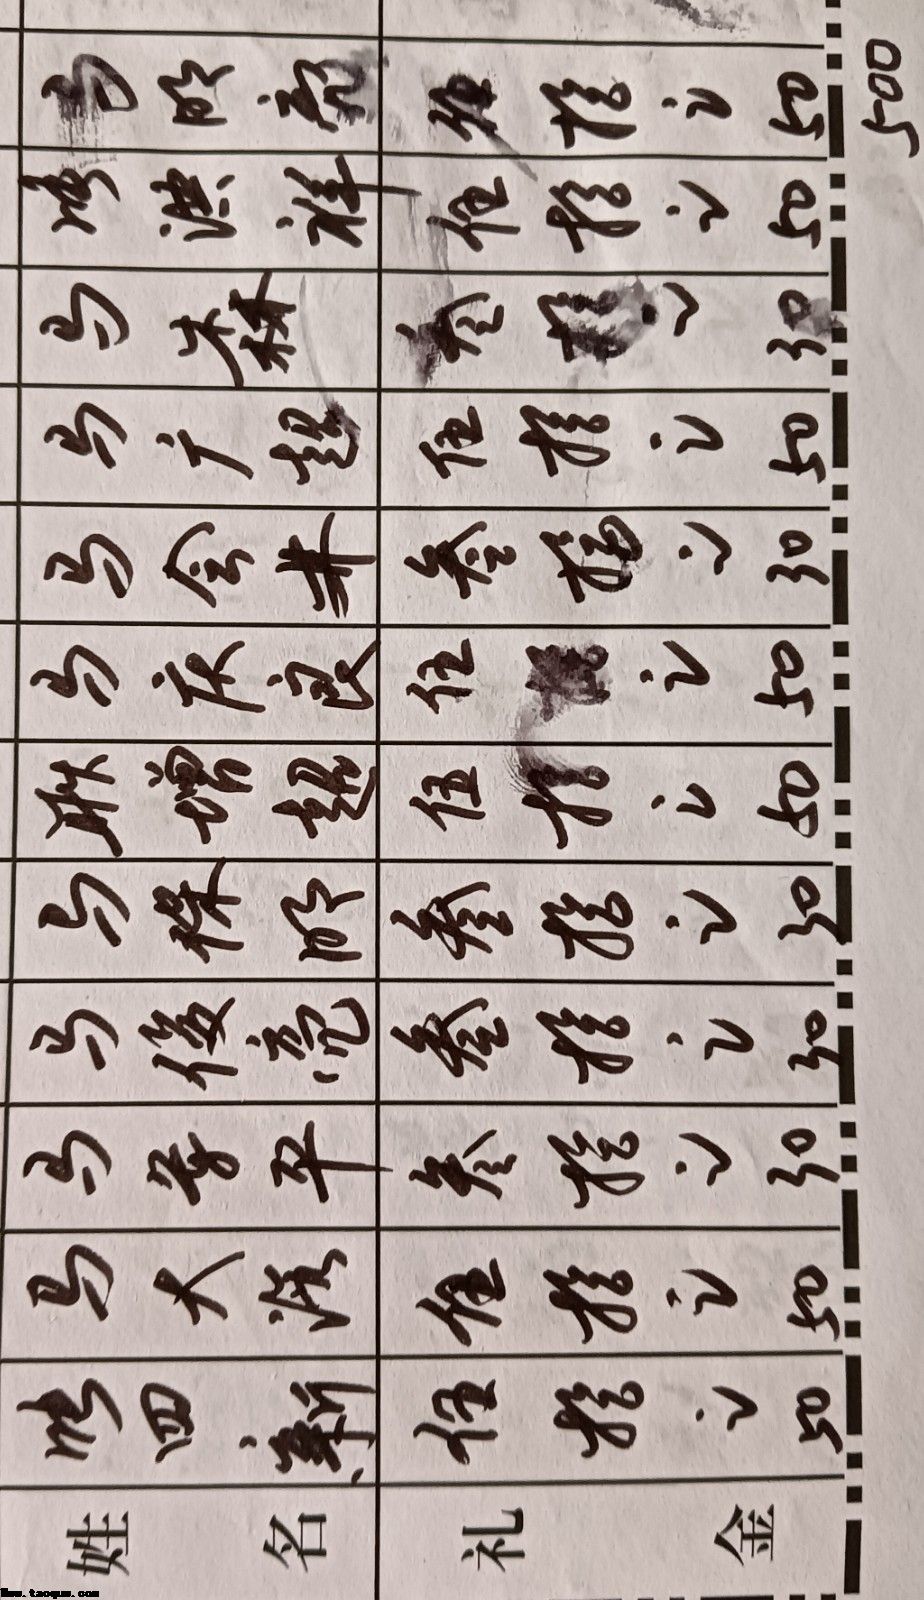 姓名 礼金
四新 伍拾元 50
马大 伍拾元 50
马学平 叁拾元 30
马俊亮 叁拾元 30
马保明 叁拾元 30
耿增超 伍拾元 50
马庆良 伍元 50
马金井 叁拾元 30
马广超 伍拾元 50
马 叁拾元 30
洪祥 伍拾元 50
马明亮 伍拾元 50
500
Www.taoquw.com